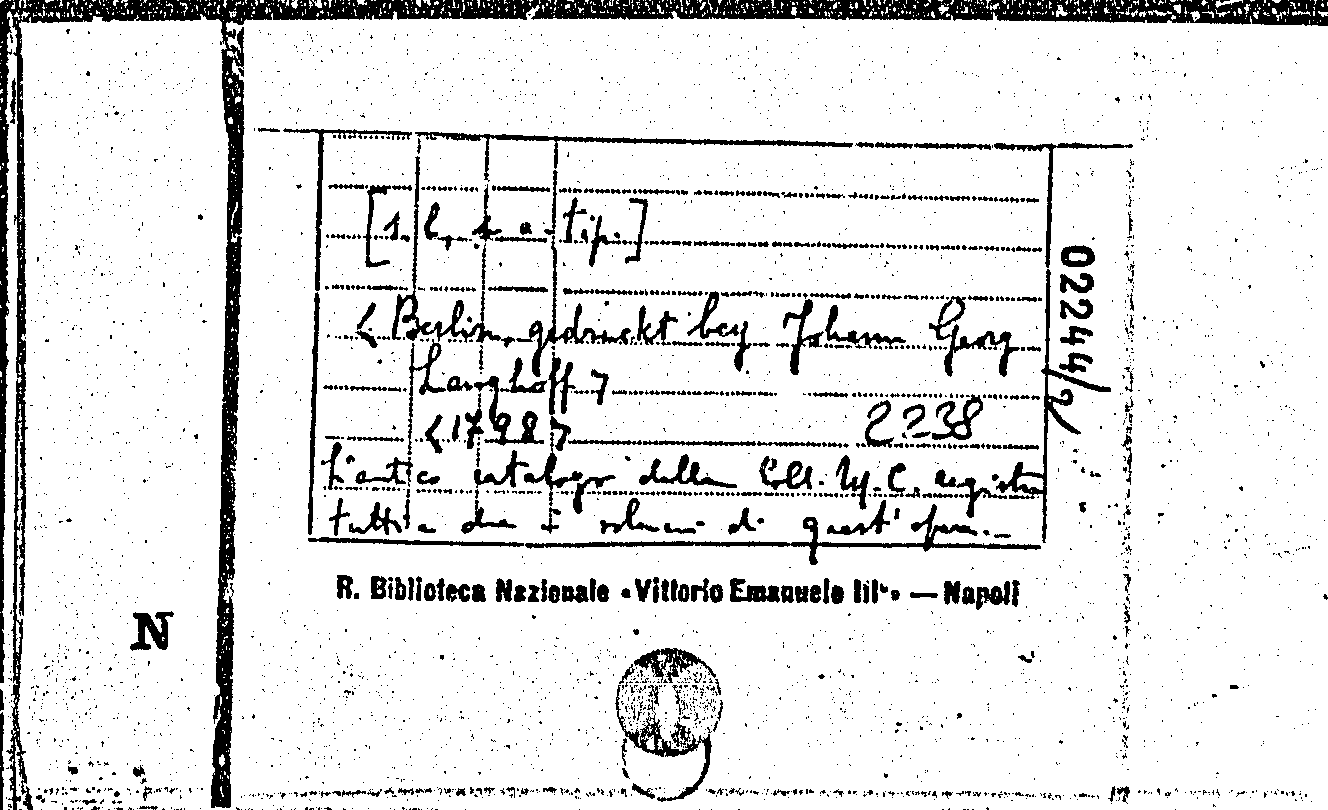 [s. l., s. a. tip.]
< Berlin, gedruckt bey Johann Georg
Langhoff >
<1798> 2238
L'antico catalogo della Coll. M. C. registra
tutti e due i volumi di quest'opera.
R. Biblioteca Nazionale «Vittorio Emanuele III°» — Napoli
02244/2
N